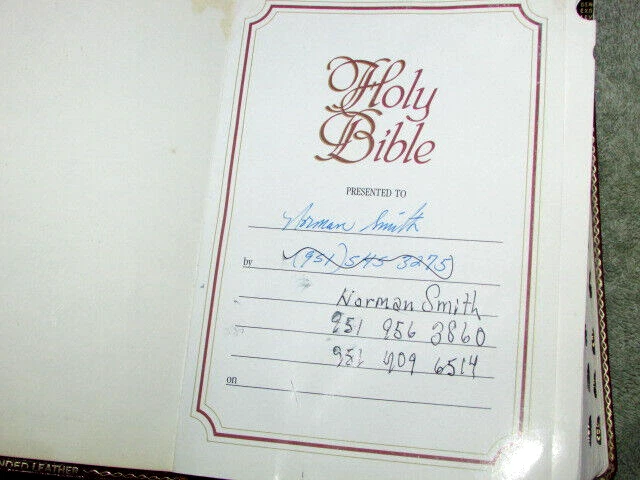 Holy
Bible
PRESENTED TO
Norman Smith
by (951) 545 3275
Norman Smith
951 956 3860
951 709 6514
on
NDED LEATHER